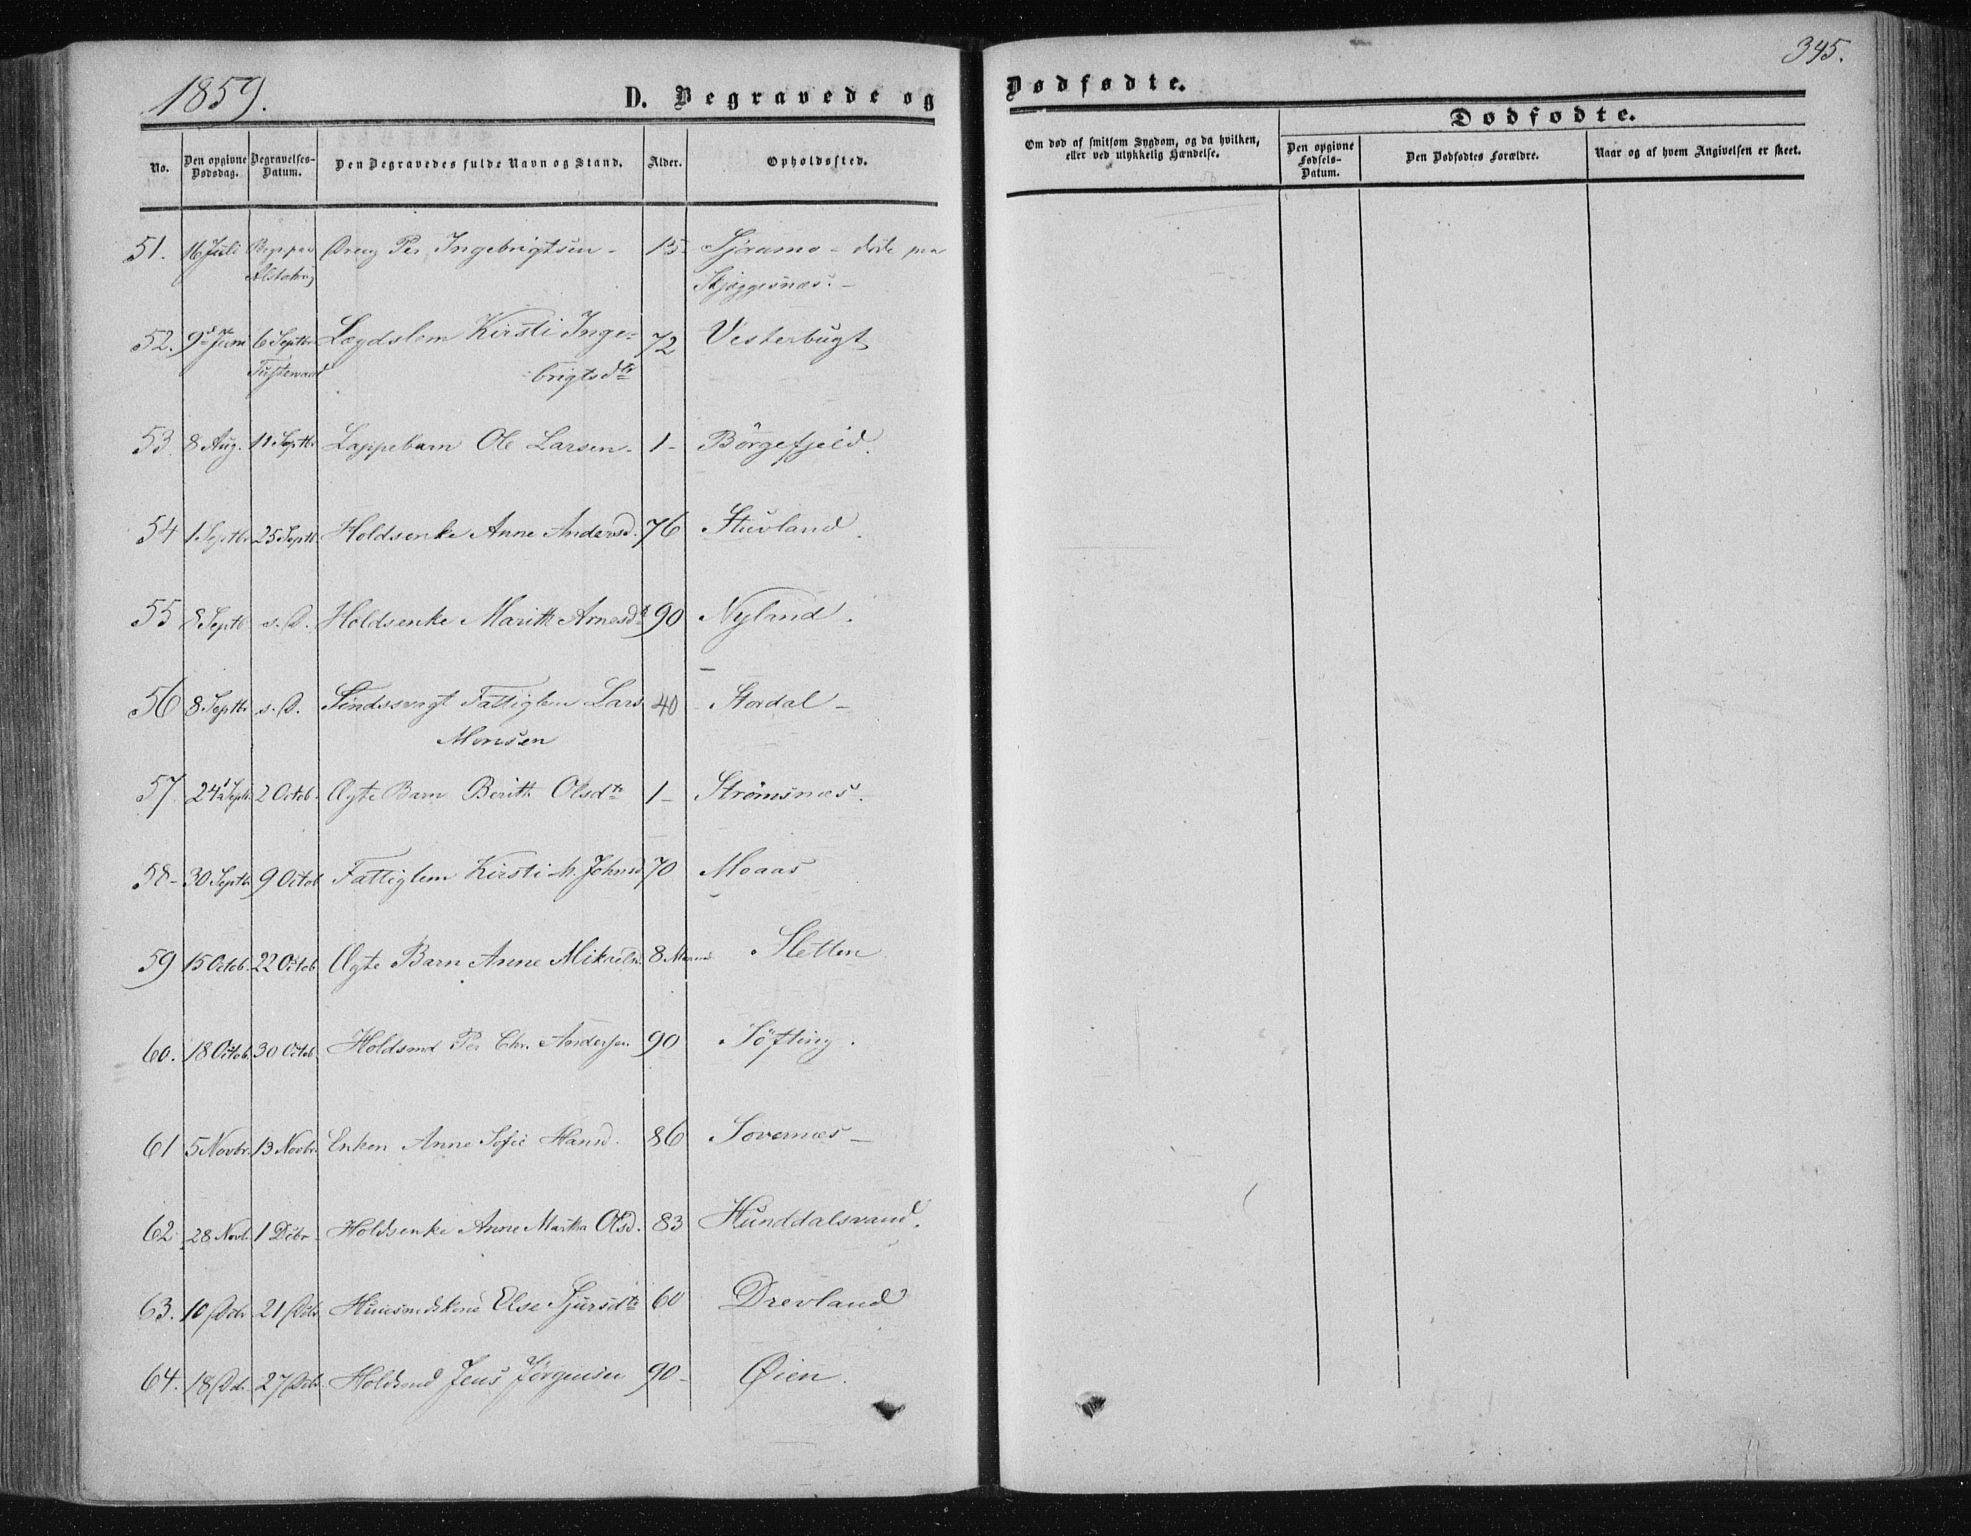 1859.
345.
D. Begravede og Dødfødte.
Dødfødte.
No.
Den opgivne Dødsdag.
Begravelses-Datum.
Den Begravedes fulde Navn og Stand.
Alder.
Opholdssted.
Om død af smitsom Sygdom, og da hvilken, eller ved ulykkelig Hændelse.
Den opgivne Fødsels-Datum.
Den Dødfødtes Forældre.
Naar og af hvem Angivelsen er skeet.
51. 16 Juli Dreng Per Ingebrigtsen - 15 - døde paa
Alstahoug
52. 9de Juni 6 Septbr Lægdslem Kirsti Inge- 72 Vesterbugt
brigtsdtr
53. 8 Aug. 11 Septbr Lappebarn Ole Larsen. 1 - Børgefjeld.
54 1 Septbr 25 Septb. Holdsenke Anne Andersd. 76 Stuvland.
55 8 Septb s. D. Holdsenke Marith Arnesd. 90 Nyland.
56 8 Septbr s. D. Sindssvagt Fattiglem Lars 40 Stordal -
Monsen
57. 24 Septb. 2 Octob. Ægte Barn Berith Olsdtr 1 - Strømsnæs.
58 - 30 Septb. 9 Octob Fattiglem Kirsti M. Johnsd 70 Moaas
59 15 Octob. 22 Octob. Ægte Barn Anne Mikelsd. 8 Sletten
60. 18 Octob. 30 Octob Holdsmd Per Chr. Andersen 90 Søfting.
61 5 Novbr. 13 Novbr. Enken Anne Sofie Hansd. 86 Sovernæs -
62 28 Novb. 1 Debr Holdsenke Anne Martha Olsd. 83 Hunddalsvand.
63. 10 Dcb. 21 Dcb. Huusmdskone Else Sjursdtr 60 Drevland
64. 18 Dcb. 27 Dcb. Holdsmd Jens Jørgensen 90 - Øien.